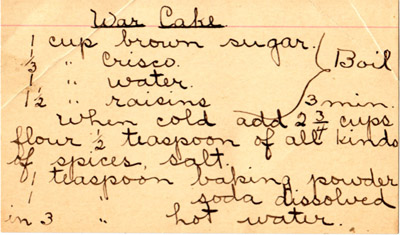 War Cake
1 cup brown sugar.
1/3 " Crisco. Boil
1 " water.
1 1/2 " raisins 3 min.
When cold add 2 3/4 cups
flour 1/2 teaspoon of all kinds
of spices, salt.
1 teaspoon baking powder
1 " soda dissolved
in 3 " hot water.